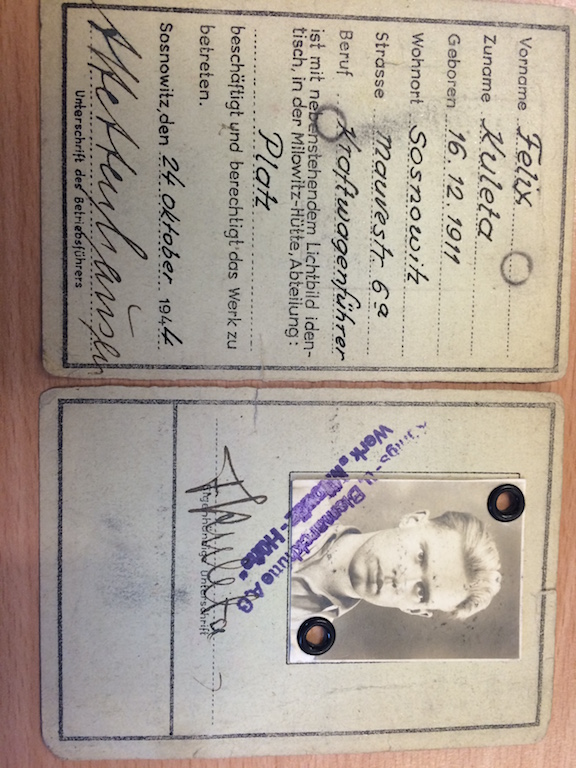 Vorname Felix
Zuname Kuleta
Geboren 16.12.1911
Wohnort Sosnowitz
Strasse Mauvestr 6a
Beruf Kraftwagenführer
ist mit nebenstehendem Lichtbild iden-
tisch, in der Milowitz-Hütte, Abteilung:
Platz
beschäftigt und berechtigt das Werk zu
betreten.
Sosnowitz, den 24 Oktober 1944
Unterschrift des Betriebsführers
Königs- u. Bismarckhütte A.G
Werk „Milowitz-Hütte“
FKuleta
Eigenhändige Unterschrift